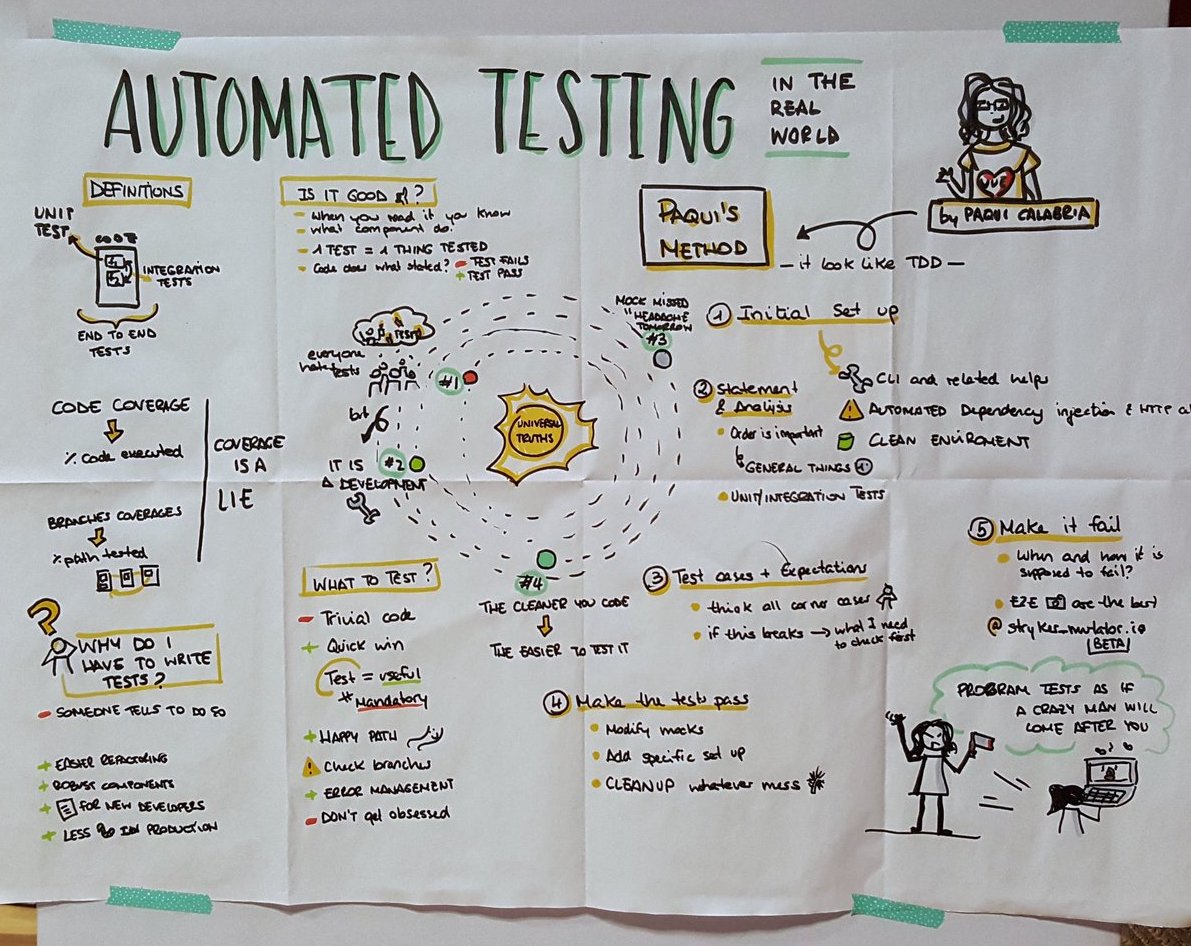 AUTOMATED TESTING
IN THE
REAL
WORLD
DEFINITIONS
UNIT
TEST
CODE
INTEGRATION
TESTS
END TO END
TESTS
CODE COVERAGE
% code executed
BRANCHES COVERAGES
% path tested
COVERAGE
IS A
LIE
?
WHY DO I
HAVE TO WRITE
TESTS?
- SOMEONE TELLS TO DO SO
+ EASIER REFACTORING
+ ROBUST COMPONENTS
+ FOR NEW DEVELOPERS
+ LESS IN PRODUCTION
IS IT GOOD ?
- When you read it you know
- what component do.
- 1 TEST = 1 THING TESTED
- Code does what stated? - TEST FAILS
+ TEST PASS
TESTS
everyone
hate tests
#1
but
IT IS #2
A DEVELOPMENT
UNIVERSAL
TRUTHS
MOCK MISSED
"HEADACHE
TOMORROW
#3
#4
THE CLEANER YOU CODE
THE EASIER TO TEST IT
WHAT TO TEST?
- Trivial code
+ Quick win
Test = useful
* Mandatory
+ HAPPY PATH
! Check branches
+ ERROR MANAGEMENT
- DON'T get obsessed
VUE
by PAQUI CALABRIA
PAQUI'S
METHOD
— it look like TDD —
1 Initial Set up
CLI and related helps
! AUTOMATED Dependency injection & HTTP
CLEAN ENVIROMENT
2 Statement
& Analysis
Order is important
GENERAL THINGS
UNIT/INTEGRATION TESTS
3 Test cases + Expectations
think all corner cases
if this breaks → what I need
to check first
4 Make the tests pass
Modify mocks
Add specific set up
CLEANUP whatever mess
5 Make it fail
When and how it is
supposed to fail?
E2E are the best
@ stryker_mutator.io
BETA
PROGRAM TESTS AS IF
A CRAZY MAN WILL
COME AFTER YOU